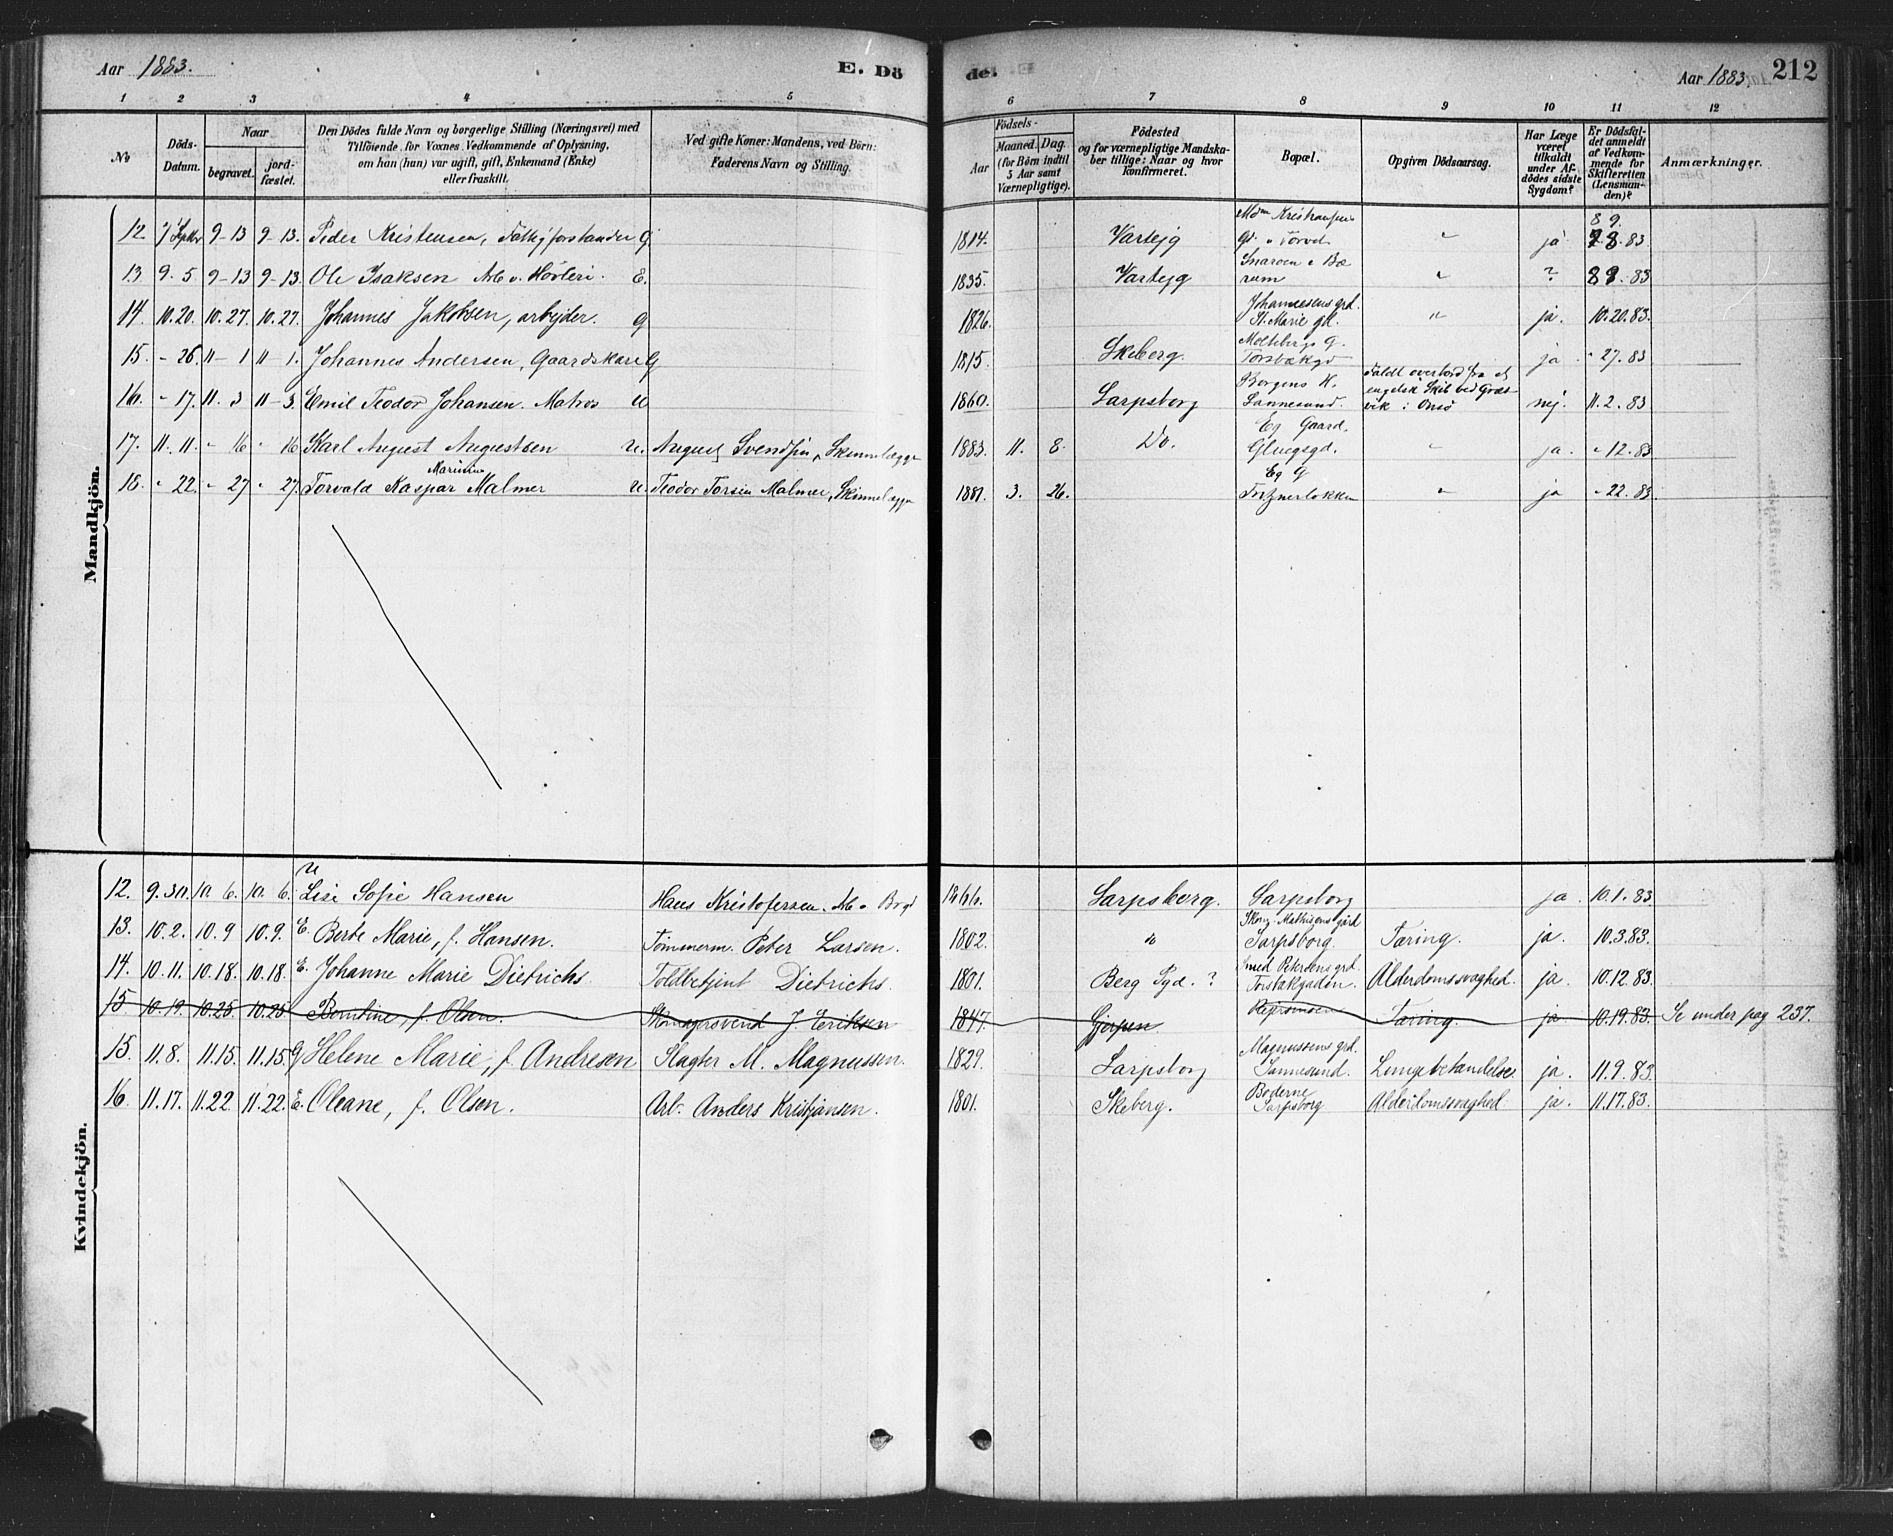 Aar 1883. E. Dö de. Aar 1883. 212
1 2 3 4 5 6 7 8 9 10 11 12
No
Döds-Datum.
Naar
begravet.
jord-fæstet.
Den Dödes fulde Navn og borgerlige Stilling (Næringsvei) med
Tilföiende, for Voxnes Vedkommende af Oplysning,
om han (hun) var ugift, gift, Enkemand (Enke)
eller fraskilt.
Ved gifte Koner: Mandens, ved Börn:
Faderens Navn og Stilling.
Födsels-
Aar
Maaned. Dag.
(for Börn indtil
5 Aar samt
Værnepligtige).
Födested
og for værnepligtige Mandska-
ber tillige: Naar og hvor
konfirmeret.
Bopæl.
Opgiven Dödsaarsag.
Har Læge
været
tilkaldt
under Af-
dödes sidste
Sygdom?
Er Dödsfal-
det anmeldt
af Vedkom-
mende for
Skifteretten
(Lensman-
den)?
Anmærkninger.
Mandkjön.
12 7 Septbr 9-13 9-13. Peder Kristensen, Fattigforstander G 1814. Varteig Gd. v. Torvet " ja 83
13. 9. 5 9-13 9-13. Ole Isaksen Arb v. Hövleri. E. 1835. Varteig Snaroen i Bærum " ? 83
14. 10.20. 10.27. 10.27. Johannes Jakobsen, arbejder. G 1826. Johannesens grd. St. Marie gd. " ja. 10.20.83.
15. " 26. 11-1 11-1. Johannes Andersen, Gaardskarl G 1815. Skeberg. Moltebergs G. Torsbækgd ja " 27. 83
16. " 17. 11. 3 11-3. Emil Teodor Johansen. Matros U 1860. Sarpsborg Borgens K. Sannesund. Faldt overbord fra et engelsk Skib ved Græsvik i Onsö nej. 11.2.83
17. 11.11. " 16 " 16 Karl August Augustsen U. August Svendsen, Skinnelægger 1883. 11. 8. Do. Eg Gaard. Glengsgd. " ja. " 12.83
18. " 22. " 27 " 27. Torvald Kaspar Marinius Malmer U. Teodor Torsen Malmer, Skinnelægger 1881. 3. 26. Eg G " ja " 22.83
Kvindekjön.
12. 9.30. 10.6. 10.6. U Lise Sofie Hansen Hans Kristofersen. Arb. 1866. Sarpsborg. Sarpsborg ja. 10.1.83
13. 10.2. 10.9 10.9. E. Berte Marie, f. Hansen. Tömmerm. Peter Larsen. 1802. " Skom. Mathisens gård Sarpsborg. Tæring. ja. 10.3.83.
14. 10.11. 10.18. 10.18. E. Johanne Marie Dietrichs. Toldbetjent Dietrichs. 1801. Berg Pgd. ? Smed Petersens grd. Torsbækgaden. Alderdomssvaghed. ja. 10.12.83.
15 10.19. 10.25. 10.25. Berntine, f. Olsen. Skomagersvend J. Eriksen 1847. Gjerpen Tæring. ja 10.19.83. Se under pag 237.
15. 11.8. 11.15. 11.15. G Helene Marie, f. Andresen Slagter M. Magnussen. 1829. Sarpsborg Magnussens grd. Sannesund. Lungebetændelse. ja. 11.9.83.
16. 11.17. 11.22. 11.22. E. Oleane, f. Olsen. Arb. Anders Kristjansen. 1801. Skeberg. Boderne Sarpsborg Alderdomssvaghed. ja. 11.17.83.